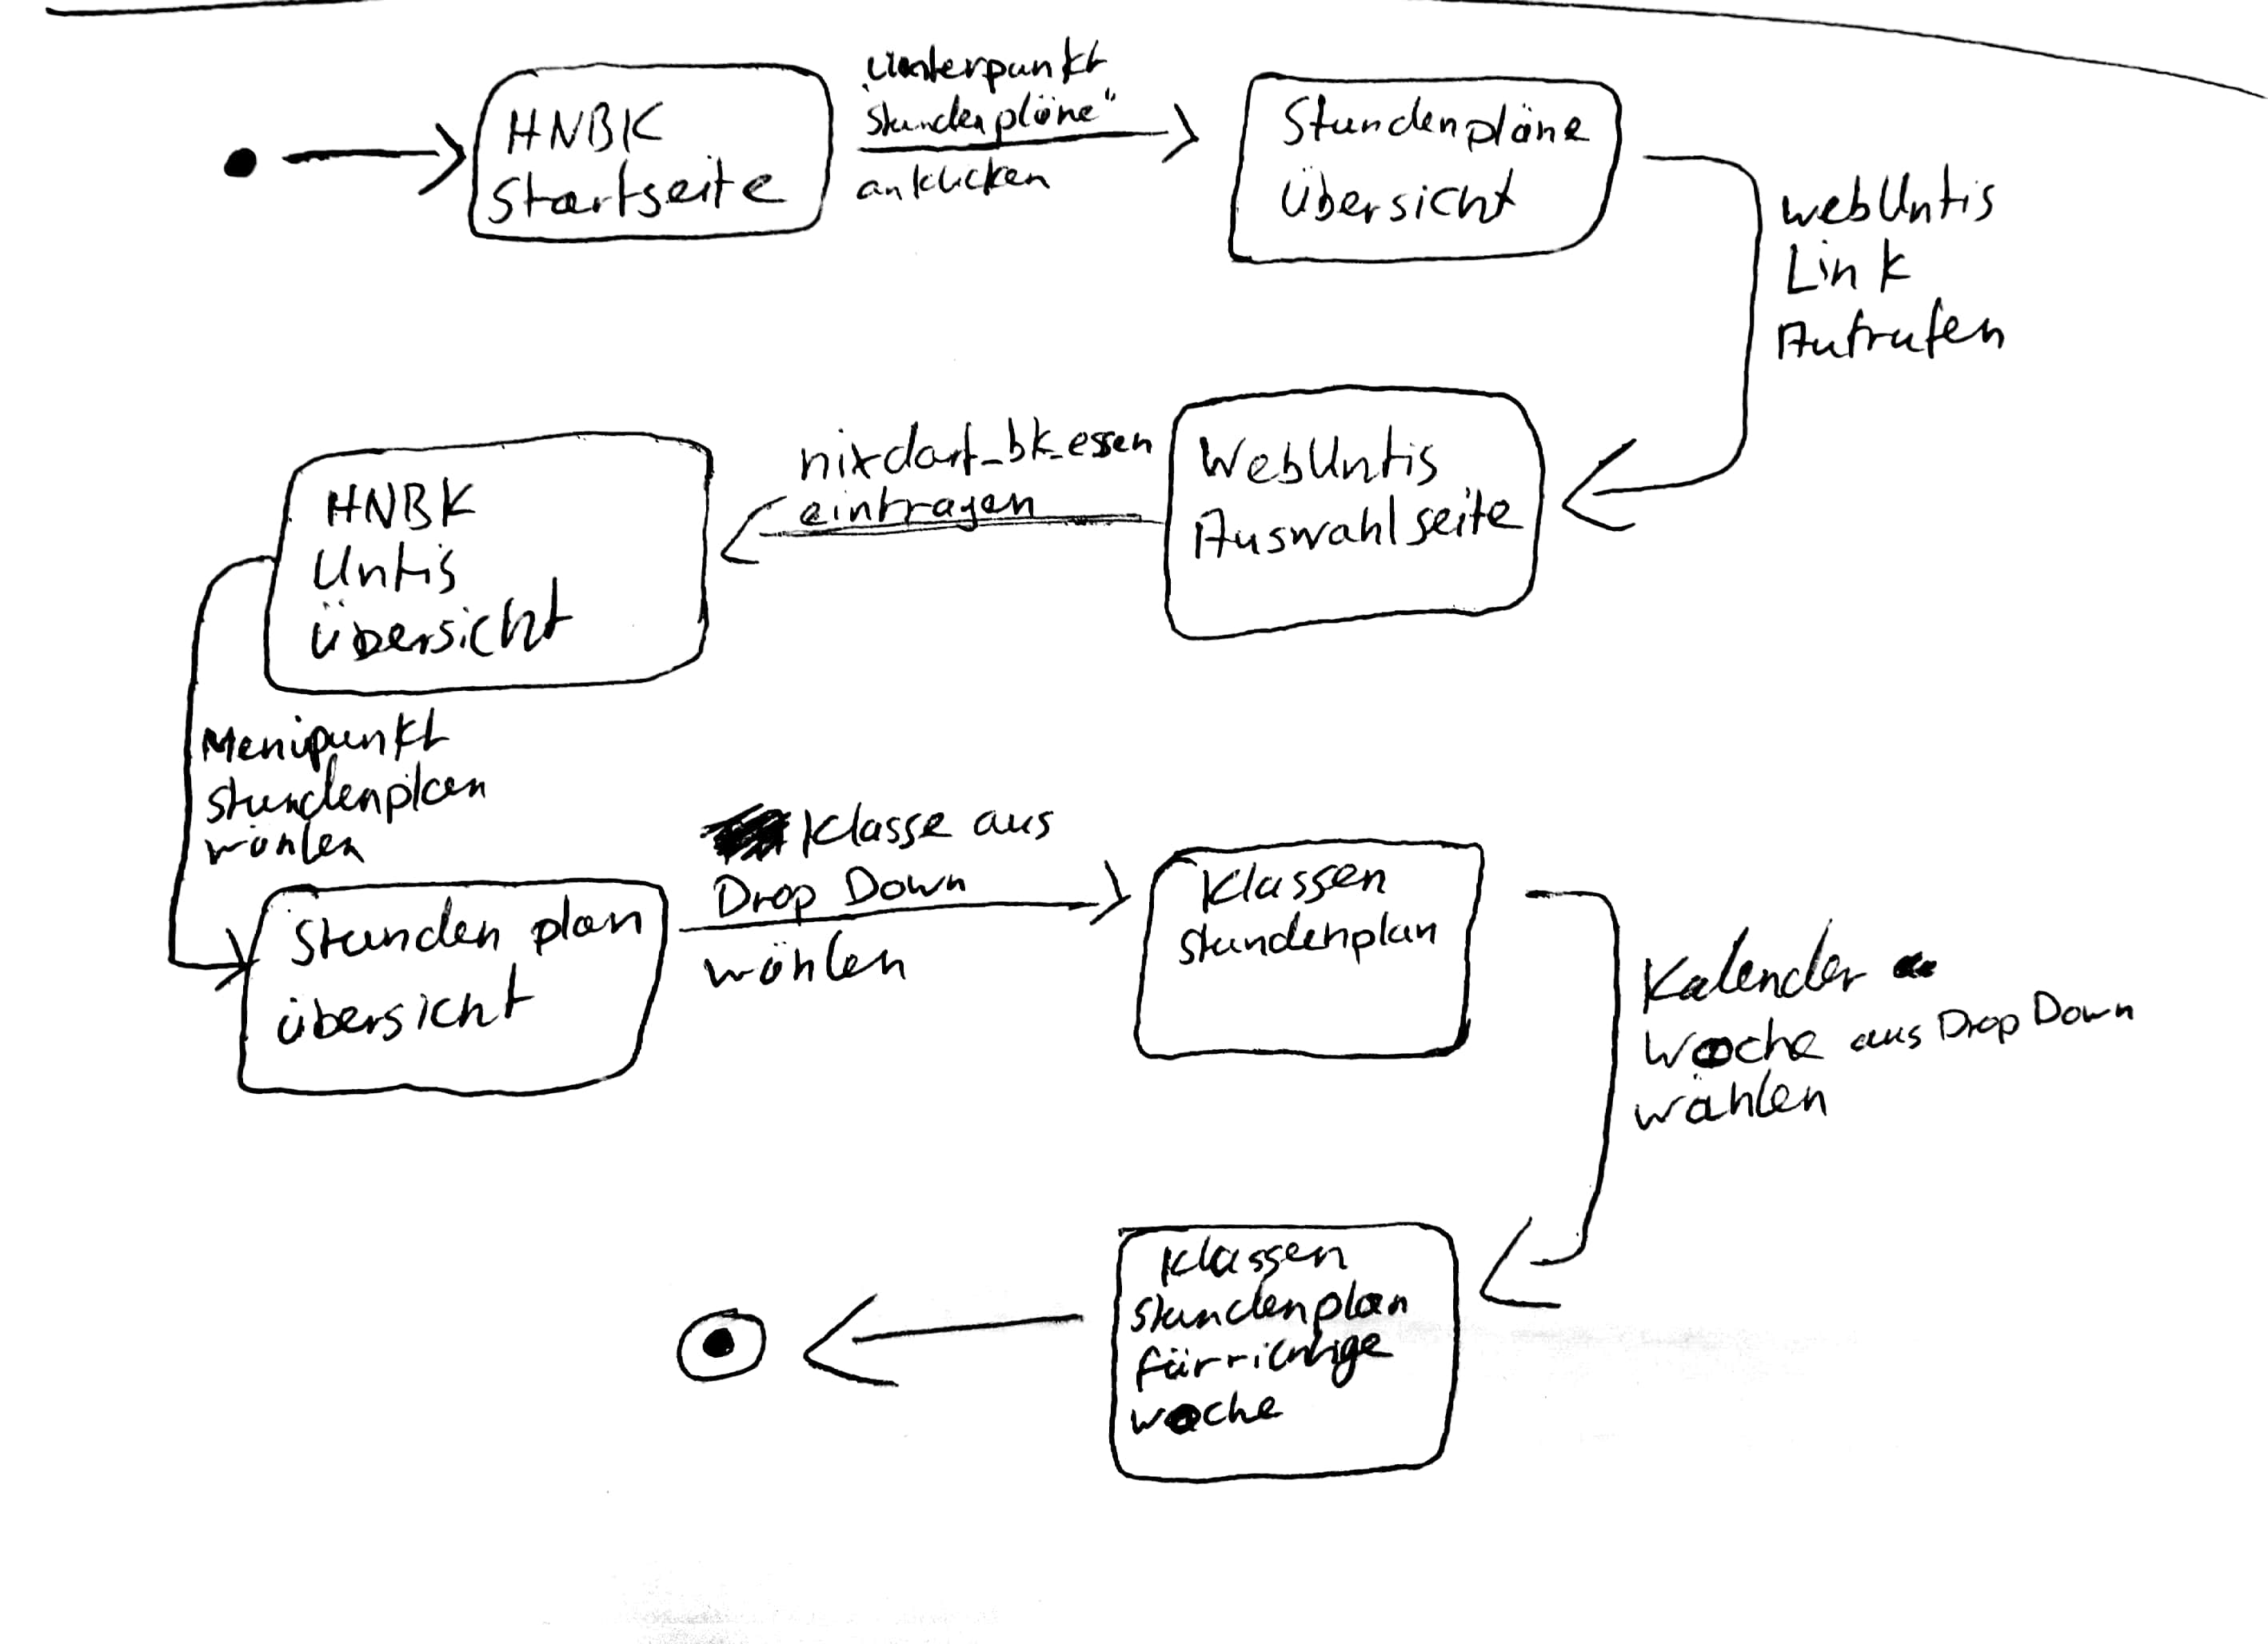 HNBK
Startseite
Unterpunkt
"Stundenpläne"
anklicken
Stundenpläne
Übersicht
webUntis
Link
Aufrufen
WebUntis
Auswahlseite
nixdorf_bk_essen
eintragen
HNBK
Untis
übersicht
Menüpunkt
stundenplan
wählen
Stunden plan
übersicht
Klasse aus
Drop Down
wählen
Klassen
stundenplan
Kalender
woche aus Drop Down
wählen
Klassen
stundenplan
für richtige
woche